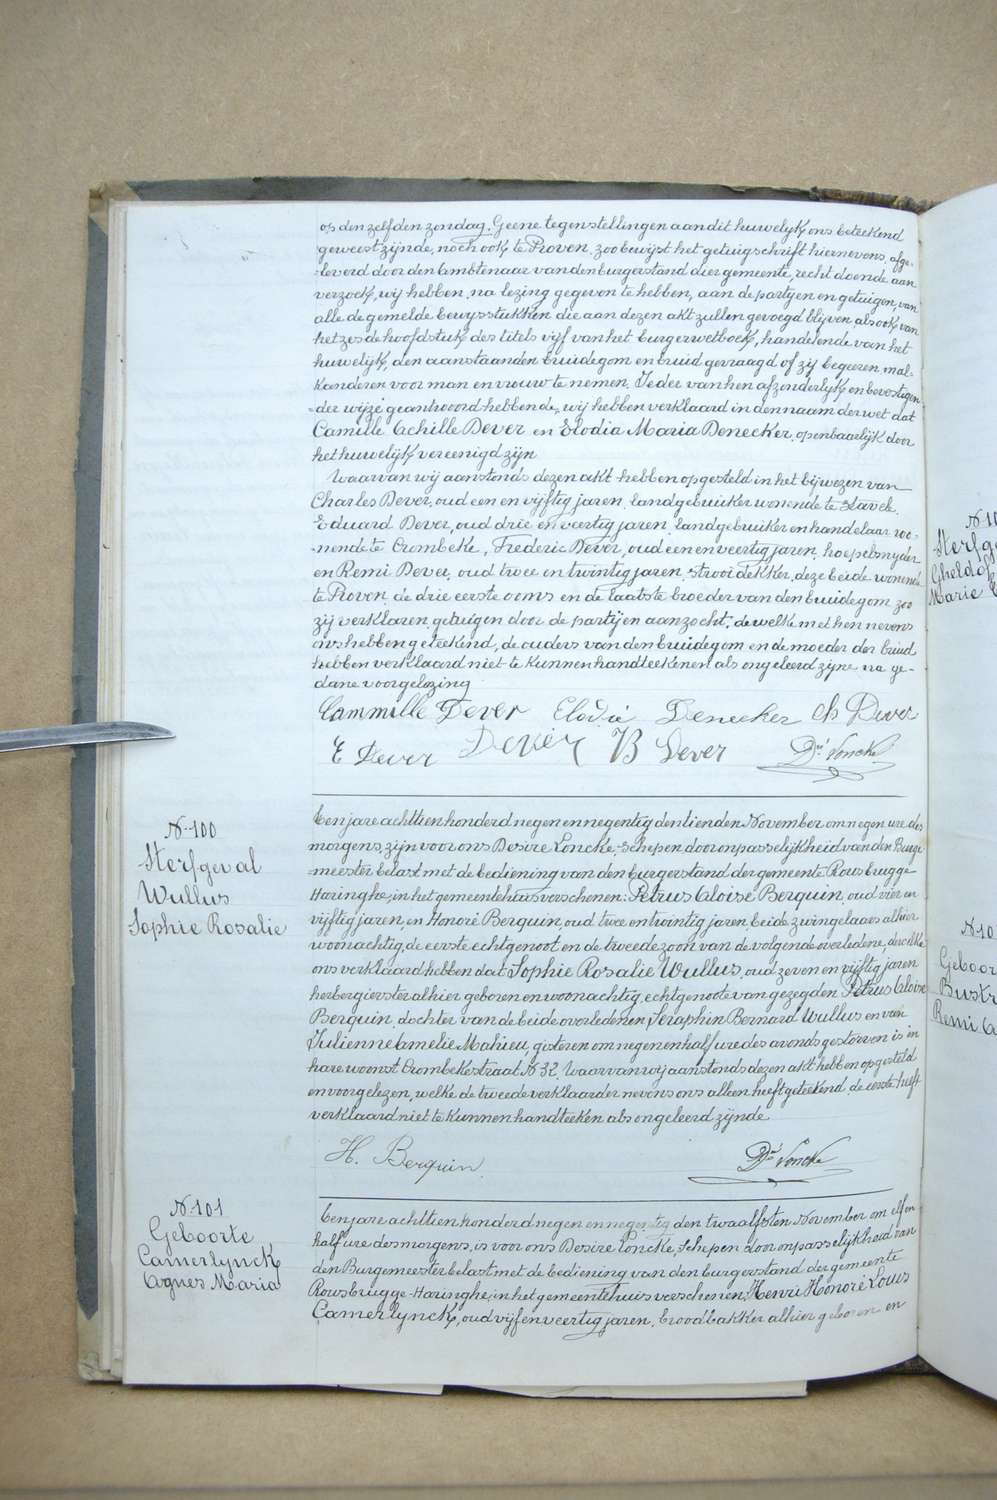 op den zelfden zondag. Geene tegenstellingen aan dit huwelijk ons beteekend
geweest zijnde, noch ook te Proven, zoo bewijst het getuigschrift hiernevens, afge-
leverd door den Ambtenaar van den burgerstand dier gemeente, recht doende aan
verzoek, wij hebben, na lezing gegeven te hebben, aan de partyen en getuigen, van
alle de gemelde bewysstukken die aan dezen akt zullen gevoegd blijven alsook van
het zesde hoofdstuk des titels vijf van het burgerwetboek, handelende van het
huwelijk, den aanstaanden bruidegom en bruid gevraagd of zij begeeren mal-
kanderen voor man en vrouw te nemen. Ieder van hen afzonderlijk en bevestigen-
der wijze geantwoord hebbende, wij hebben verklaard in den naam der wet dat
Camille Achille Dever en Elodia Maria Denecker, openbaarlijk door
het huwelijk vereenigd zijn
Waarvan wij aanstonds dezen akt hebben opgesteld in het bijwezen van
Charles Dever, oud een en vijftig jaren, landgebruiker wonende te Stavele.
Eduard Dever, oud drie en veertig jaren, landgebruiker en handelaar wo-
nende te Crombeke, Frederic Dever, oud een en veertig jaren, hoepelsnyder
en Remi Dever, oud twee en twintig jaren, strooidekker, deze beide wonende
te Proven, de drie eerste ooms en de laatste broeder van den bruidegom zoo
zij verklaren, getuigen door de partijen aanzocht, de welke met hen nevens
ons hebben geteekend, de ouders van den bruidegom en de moeder der bruid
hebben verklaard niet te kunnen handteekenen als ongeleerd zijne na ge-
dane voorlezing
Cammille Dever Elodie Denecker Ch Dever
E Dever Dever B Dever Dré Loncke
N. 100
Sterfgeval
Wullus
Sophie Rosalie
Ten jare achttien honderd negen en negentig den tienden November om negen ure des
morgens, zijn voor ons Desire Loncke, Schepen, door onpasselijkheid van den Burge-
meester belast met de bediening van den burgerstand der gemeente Rousbrugge
Haringhe, in het gemeentehuis verschenen: Petrus Aloise Berquin, oud vier en
vijftig jaren, en Honoré Berquin, oud twee en twintig jaren, beide zwingelaars alhier
woonachtig, de eerste echtgenoot en de tweede zoon van de volgende overledene, dewelke
ons verklaard hebben dat Sophie Rosalie Wullus, oud zeven en vijftig jaren
herbergierster alhier geboren en woonachtig, echtgenoote van gezegden Petrus Aloise
Berquin, dochter van de beide overledenen Seraphin Bernard Wullus en van
Julienne Amelie Mahieu, gisteren om negen en half ure des avonds gestorven is in
hare woonst Crombekestraat N 32. Waarvan wij aanstonds dezen akt hebben opgesteld
en voorgelezen, welke de tweede verklaarder nevens ons alleen heeft geteekend, de eerste heeft
verklaard niet te kunnen handteeken als ongeleerd zijnde
H. Berquin Dré Loncke
N. 101
Geboorte
Camerlynck
Agnes Maria
Ten jare achttien honderd negen en negentig den twaalfsten November om elf en
half ure des morgens, is voor ons Desire Loncke, Schepen door onpasselijkheid van
den Burgemeester belast met de bediening van den burgerstand der gemeente
Rousbrugge-Haringhe, in het gemeentehuis verschenen, Henri Honoré Louis
Camerlynck, oud vijf en veertig jaren, broodbakker alhier geboren en